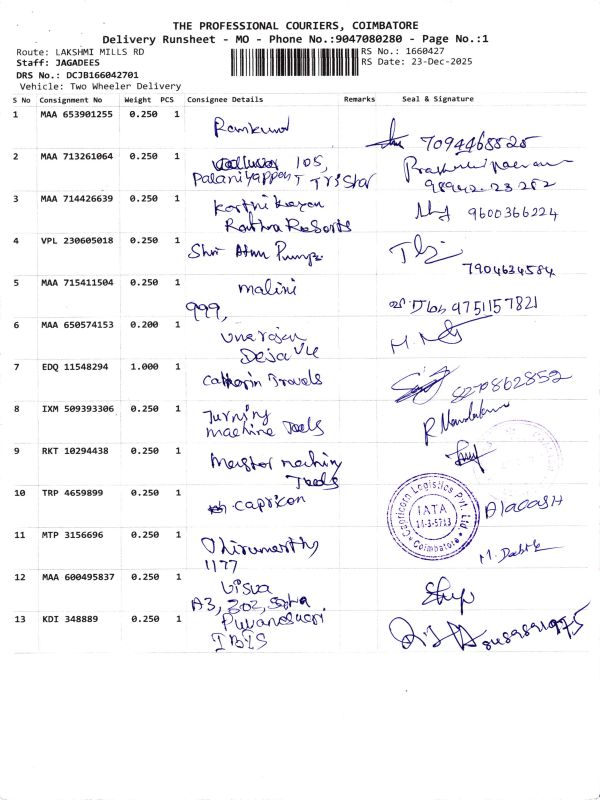 THE PROFESSIONAL COURIERS, COIMBATORE
Delivery Runsheet - MO - Phone No.:9047080280 - Page No.:1
Route: LAKSHMI MILLS RD
RS No.: 1660427
Staff: JAGADEES
RS Date: 23-Dec-2025
DRS No.: DCJB166042701
Vehicle: Two Wheeler Delivery
S No Consignment No Weight PCS Consignee Details Remarks Seal & Signature
1 MAA 653901255 0.250 1
Ramkumar
7094468525
2 MAA 713261064 0.250 1
105,
Palaniyappan T Tristar
98942 23 252
3 MAA 714426639 0.250 1
Karthikeyan
9600366224
Rathna Resorts
4 VPL 230605018 0.250 1
Shri Atm Pumps
7904634584
5 MAA 715411504 0.250 1
malini
9751157821
999,
6 MAA 650574153 0.200 1
Deja Vie
7 EDQ 11548294 1.000 1
8270862852
8 IXM 509393306 0.250 1
Turning
machine Tools
9 RKT 10294438 0.250 1
Tools
10 TRP 4659899 0.250 1
capricon
Capricorn Logistics Pvt. Ltd.
IATA
14-3-5713
Coimbatore
11 MTP 3156696 0.250 1
Thirumorthy
1177
12 MAA 600495837 0.250 1
Visva
A3, 302,
13 KDI 348889 0.250 1